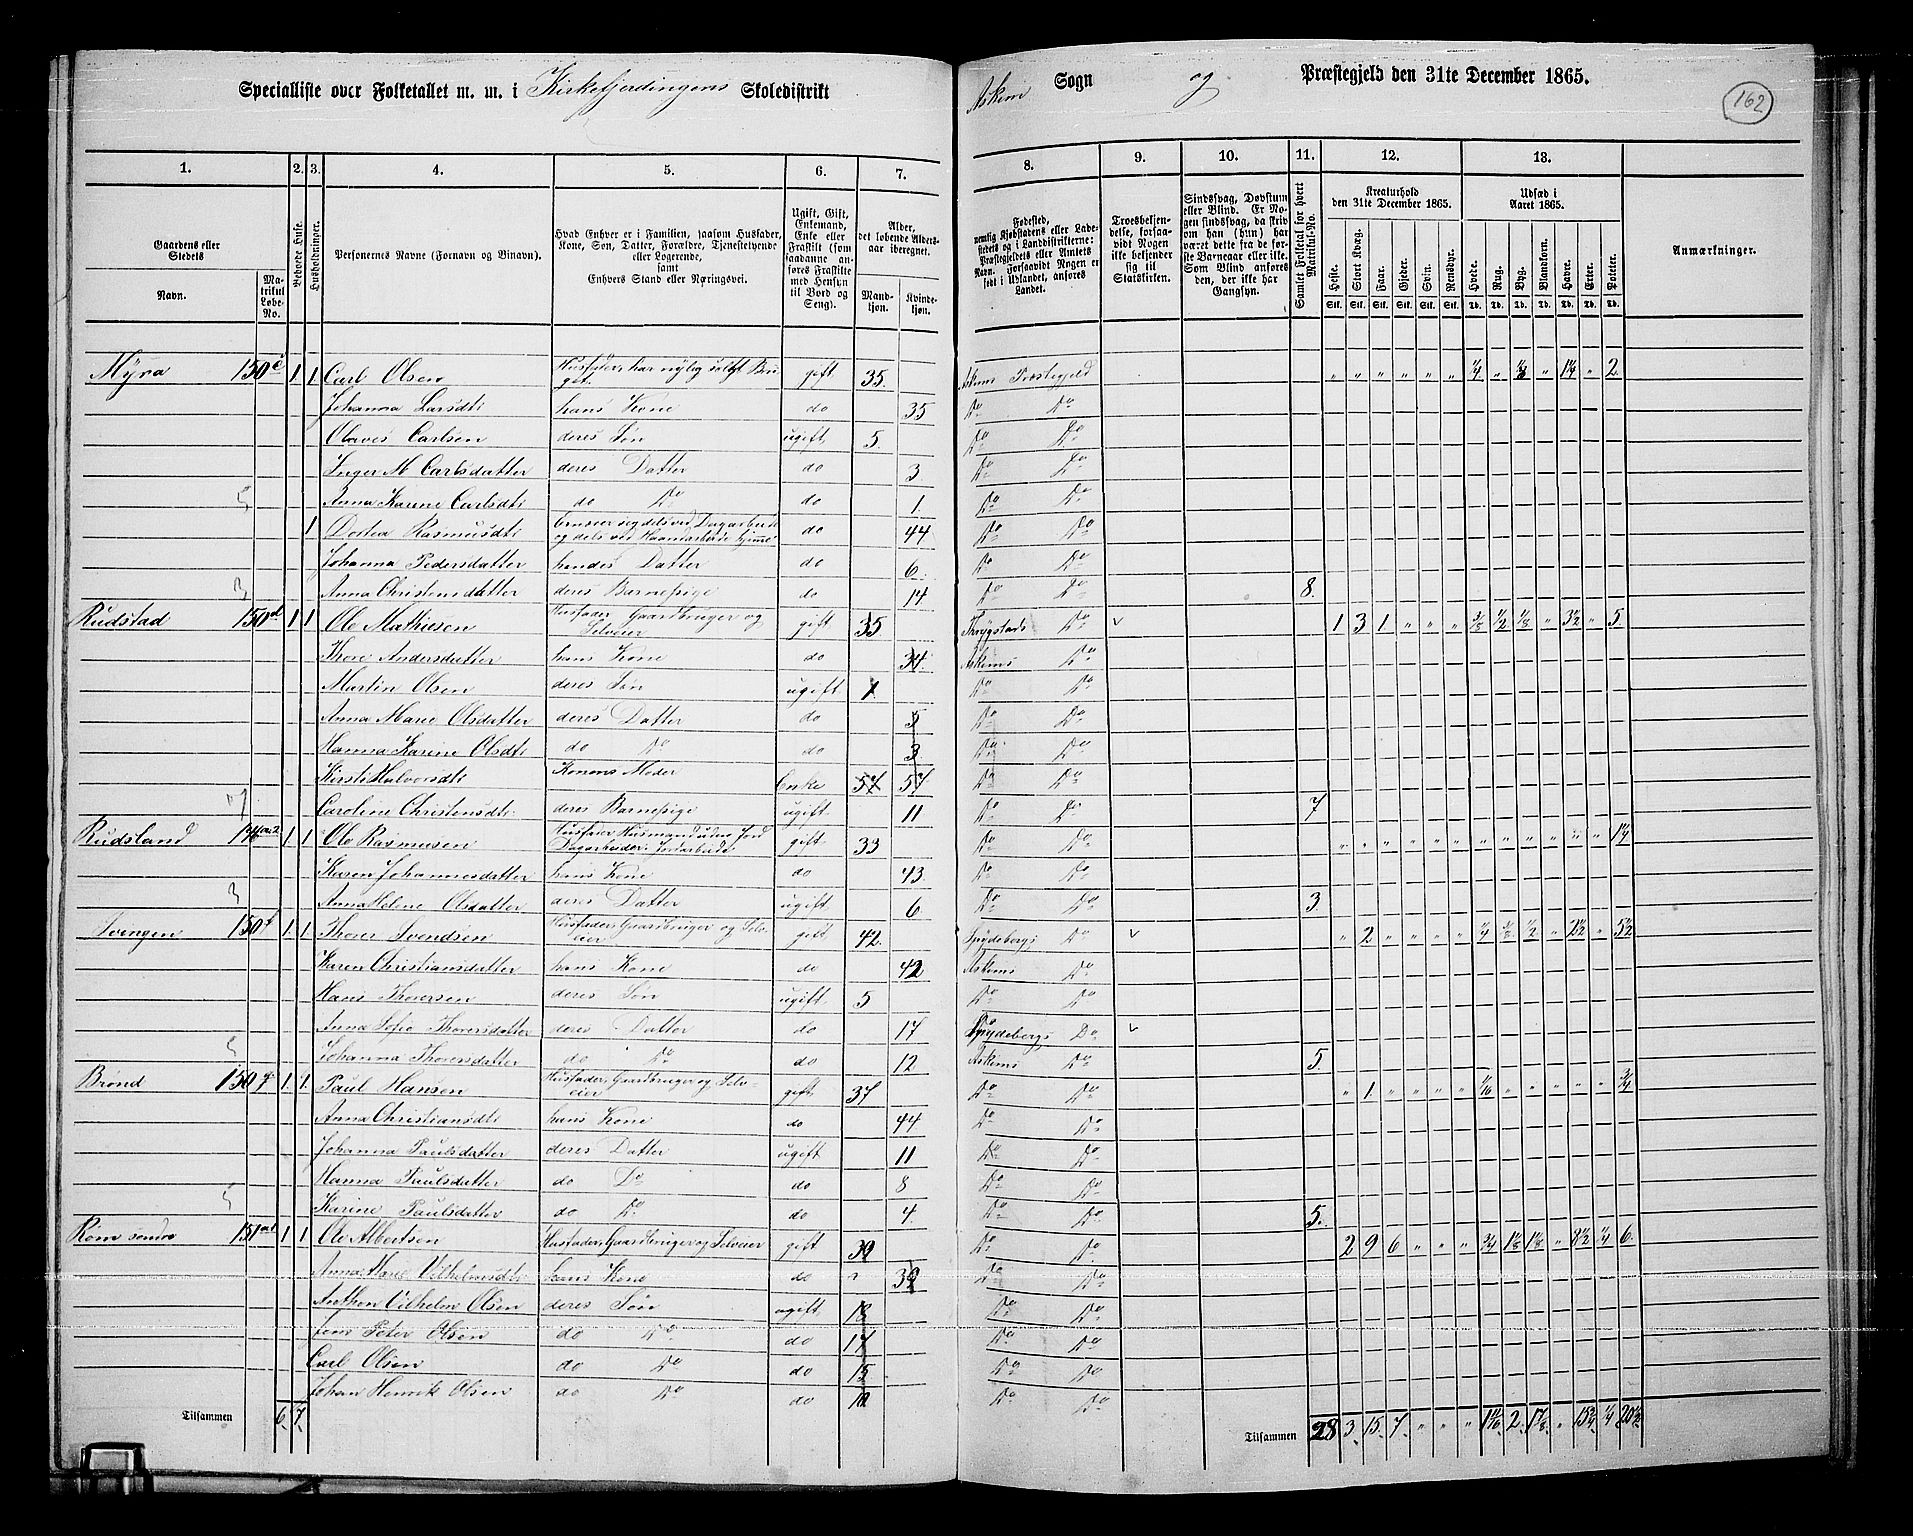 Specialliste over Folketallet m. m. i Kirkefjerdingens Skoledistrikt
Askim Sogn og Præstegjeld den 31te December 1865.
162
1. 2. 3. 4. 5. 6. 7.
8. 9. 10. 11. 12. 13.
Gaardens eller Stedets
Navn.
Matrikul Løbe-No.
Beboede Huse.
Husholdninger.
Personernes Navne (Fornavn og Binavn).
Hvad Enhver er i Familien, saasom Husfader, Kone, Søn, Datter, Forældre, Tjenestetyende eller Logerende, samt Enhvers Stand eller Næringsvei.
Ugift, Gift, Enkemand, Enke eller Fraskilt (som saadanne anføres Fraskilte med Hensyn til Bord og Seng).
Alder, det løbende Alders-aar iberegnet.
Mandkjøn. Kvindekjøn.
Fødested, nemlig Kjøbstadens eller Ladestedets og i Landdistrikterne: Præstegjeldets eller Amtets Navn. Forsaavidt Nogen er født i Udlandet, anføres Landet.
Troesbekjendelse, forsaavidt Nogen ikke bekjender sig til Statskirken.
Sindssvag, Døvstum eller Blind. Er Nogen sindssvag, da skrives om han (hun) har været dette fra de første Barneaar eller ikke. Som Blind anføres den, der ikke har Gangsyn.
Samlet Folketal for hvert Matrikul-No.
Kreaturhold den 31te December 1865.
Heste. Stort Kvæg. Faar. Gjeder. Svin. Rensdyr.
Stk. Stk. Stk. Stk. Stk. Stk.
Udsæd i Aaret 1865.
Hvede. Rug. Byg. Blandkorn. Havre. Erter. Poteter.
Td. Td. Td. Td. Td. Td. Td.
Anmærkninger.
Myra 150 c 1 1 Carl Olsen Husfader, har nylig solgt Bruget. gift 35. Askims Præstegjeld " " " " " " 1/4 " " 1 1/4 " 2
Johanna Larsdt. hans Kone do 35 Do Do
Olaves Carlsen deres Søn ugift 5. Do Do
Inger M Carlsdatter deres Datter do 3 Do Do
5 Anna Karine Carlsdt. do Do do 1. Do Do
1 Dortea Rasmusdt. Ernærer sig dels ved Dagarbeide og dels ved Haandarbeide hjemme do 44 Do Do
Johanna Pedersdatter hendes Datter do 6. Do Do
3 Anna Christensdatter deres Barnepige do 14 Do Do 8.
Rudstad 150 d 1 1 Ole Mathiesen Husfader, Gaardbruger og Selveier gift 35 Thrygstads Do v 1 3 1 " " " 3/8 1/2 1/8 " 3 1/2 " 5
Thore Andersdatter hans Kone do 34. Askims Do
Martin Olsen deres Søn ugift 1 Do Do
Anna Marie Olsdatter deres Datter do Do Do
Hanna Karine Olsdt. do Do do 3 Do Do
Kirsti Halvorsdt. Konens Moder Enke 57 57 Do Do
7 Caroline Christensdt. deres Barnepige ugift 11 Do Do 7
Rudsland 1 1 Ole Rasmusen Husfader Husmand uden Jord Dagarbeider, Jordarbeide gift 33 Do Do " " " " " " " " " " " " 1 1/4
Karen Johannesdatter hans Kone do 43. Do Do
3 Anna Helene Olsdatter deres Datter ugift 6. Do Do 3.
Svingen 150 f 1. 1. Thorer Svendsen Husfader, Gaardbruger og Selveier gift 42. Spydebergs Do v " 2 " " " " 1/4 1/8 1/2 " 2 1/2 " 5 1/2
Karen Christiansdatter hans Kone do 42 Askims Do
Hans Thoresen deres Søn ugift 5 Do Do
Anna Sofie Thorersdatter deres Datter do 17 Spydebergs Do v
5 Johanna Thorersdatter do Do do 12 Askims Do 5.
Brønd 150 1. 1. Paul Hansen Husfader, Gaardbruger og Selveier gift 37 Do Do " 1. " " " " 1/16 " " " " " 3/4
Anna Christiansdt. hans Kone do 44 Do Do
Johanna Paulsdatter deres Datter ugift 11 Do Do
Hanna Paulsdatter do Do do 8 Do Do
5 Karine Paulsdatter do Do do 4. Do Do 5.
Røm søndre 151 1 1 Ole Albertsen Husfader, Gaardbruger og Selveier gift 39 Do Do 2 9 6 " " " 3/4 1 1/8 1 1/8 " 8 1/2 1/4 6.
Anna Marie Vilhelmsdt. hans Kone do 39 Do Do
Anthon Vilhelm Olsen deres Søn ugift 18 Do Do
Jens Peter Olsen do Do do 17 Do Do
Carl Olsen do Do do 15 Do Do
Johan Henrik Olsen do Do do Do Do
Tilsammen 6. 7.
Tilsammen 28 3. 15. 7. " " " 2. 1 7/8 " 15 3/4 1/4 20 1/2